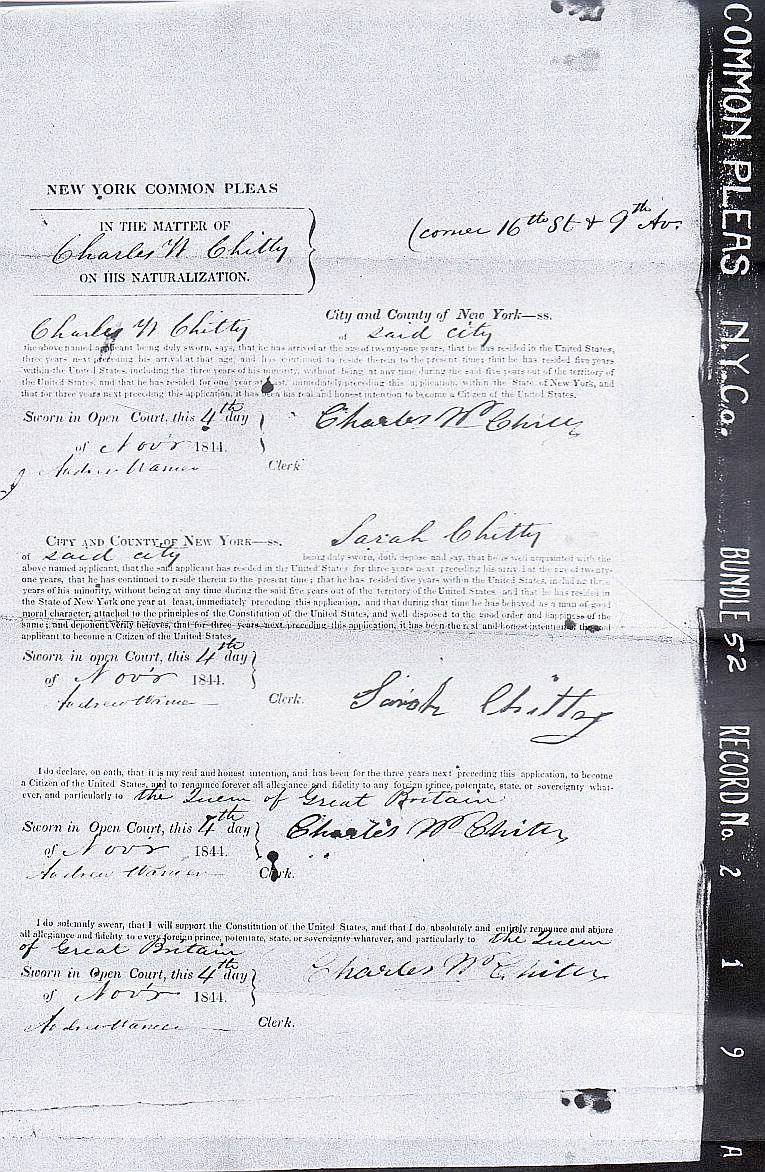 NEW YORK COMMON PLEAS
IN THE MATTER OF
Charles W Chitty
ON HIS NATURALIZATION.
(corner 16th St & 9th Av.
City and County of New York—ss.
Charles W Chitty of said city
the above named applicant being duly sworn, says, that he has arrived at the age of twenty-one years, that he has resided in the United States,
three years next preceding his arrival at that age, and has continued to reside therein to the present time; that he has resided five years
within the United States, including the three years of his minority, without being at any time during the said five years out of the territory of
the United States, and that he has resided for one year at least, immediately preceding this application, within the State of New York, and
that for three years next preceding this application, it has been his real and honest intention to become a Citizen of the United States.
Sworn in Open Court, this 4th day
of Nov'r 1844.
Charles Wm Chitty
Andrew Warner Clerk
CITY AND COUNTY OF NEW YORK—ss. Sarah Chitty
of said city being duly sworn, doth depose and say, that he is well acquainted with the
above named applicant, that the said applicant has resided in the United States for three years next preceding his arrival at the age of twenty-
one years, that he has continued to reside therein to the present time; that he has resided five years within the United States, including three
years of his minority, without being at any time during the said five years out of the territory of the United States, and that he has resided in
the State of New York one year at least, immediately preceding this application, and that during that time he has behaved as a man of good
moral character, attached to the principles of the Constitution of the United States, and well disposed to the good order and happiness of the
same; and deponent verily believes, that for three years next preceding this application, it has been the real and honest intention of the said
applicant to become a Citizen of the United States.
Sworn in open Court, this 4th day
of Nov'r 1844.
Andrew Warner Clerk.
Sarah Chitty
I do declare, on oath, that it is my real and honest intention, and has been for the three years next preceding this application, to become
a Citizen of the United States, and to renounce forever all allegiance and fidelity to any foreign prince, potentate, state, or sovereignty what-
ever, and particularly to the Queen of Great Britain
Sworn in Open Court, this 4th day
of Nov'r 1844.
Charles Wm Chitty
Andrew Warner Clerk.
I do solemnly swear, that I will support the Constitution of the United States, and that I do absolutely and entirely renounce and abjure
all allegiance and fidelity to every foreign prince, potentate, state, or sovereignty whatever, and particularly to the Queen
of Great Britain
Sworn in Open Court, this 4th day
of Nov'r 1844.
Charles Wm Chitty
Andrew Warner Clerk.
COMMON PLEAS N.Y.Co. BUNDLE 52 RECORD No. 2 1 9 A